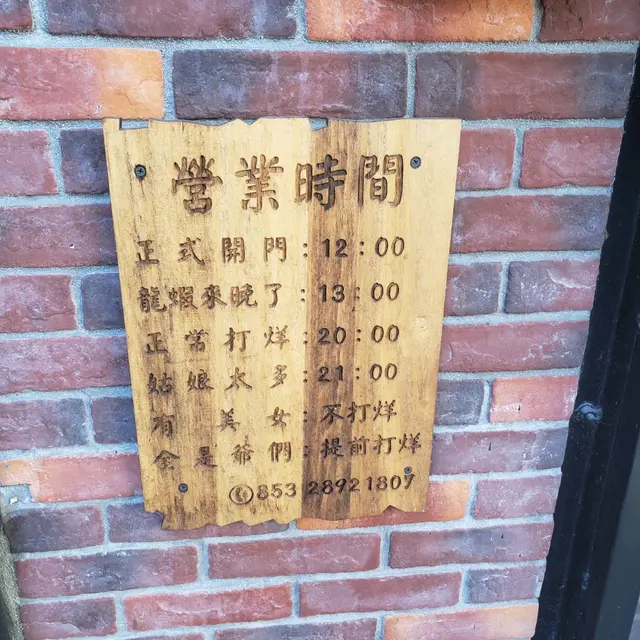 營業時間
正式開門：12：00
龍蝦來晚了：13：00
正常打烊：20：00
姑娘太多：21：00
有美女：不打烊
全是爺們：提前打烊
853 28921807